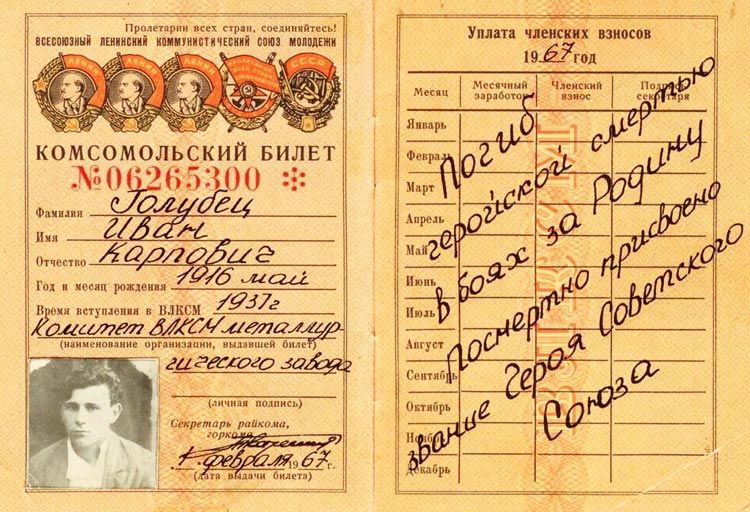 Пролетарии всех стран, соединяйтесь!
ВСЕСОЮЗНЫЙ ЛЕНИНСКИЙ КОММУНИСТИЧЕСКИЙ СОЮЗ МОЛОДЕЖИ
ЛЕНИН ЛЕНИН ЛЕНИН СССР
КОМСОМОЛЬСКИЙ БИЛЕТ
№06265300
Фамилия Голубец
Имя Иван
Отчество Карпович
Год и месяц рождения 1916 май
Время вступления в ВЛКСМ 1937г
Комитет ВЛКСМ металлур-
(наименование организации, выдавшей билет)
гического завода
(личная подпись)
Секретарь райкома,
горкома
1. февраля 1967 г.
(дата выдачи билета)
Уплата членских взносов
1967 год
Месяц
Месячный заработок
Членский взнос
Подпись секретаря
Январь
Февраль
Март
Апрель
Май
Июнь
Июль
Август
Сентябрь
Октябрь
Ноябрь
Декабрь
Погиб
геройской смертью
в боях за Родину
Посмертно присвоено
звание Героя Советского
Союза